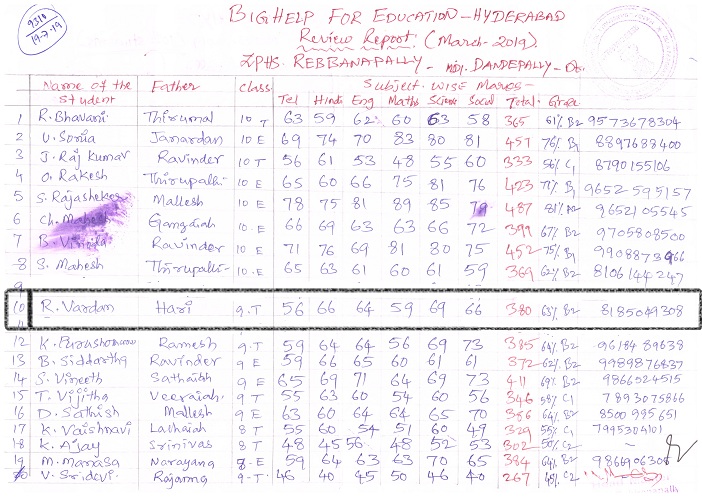 9310
19-7-19
BIGHELP FOR EDUCATION - HYDERABAD
Review Report. (March-2019).
ZPHS. REBBANAPALLY - MDL. DANDEPALLY -
Name of the Student Father class Subject wise Marks-
Tel Hindi Eng Maths Science Social Total Grade
1 R. Bhavani Thirumal 10 T 63 59 62 60 63 58 365 61% B2 9573678304
2 V. Sonia Janardan 10 E 69 74 70 83 80 81 457 76% B1 8897688400
3 J. Raj Kumar Ravinder 10 T 56 61 53 48 55 60 333 56% C1 8790155106
4 O. Rakesh Thirupathi 10 E 65 60 66 75 81 76 423 71% B1 9652595157
5 S. Rajasheker Mallesh 10 E 78 75 81 89 85 79 487 81% A2 9652105545
6 Ch. Mahesh Gangaiah 10 E 66 69 63 63 66 72 399 67% B2 9705808500
7 B. Ravinder 10 E 71 76 69 81 80 75 452 75% B1
8 S. Mahesh Thirupathi 10 E 65 63 61 60 61 59 369 62% B2 8106144247
9
10 R. Vardan Hari 9-T 56 66 64 59 69 66 380 63% B2 8185049308
11
12 K. Ramesh 9-T 59 64 64 56 69 73 385 64% B2 9618489638
13 B. Siddartha Ravinder 9 E 59 66 65 60 61 61 372 62% B2 9989876837
14 S. Vineeth Sathaiah 9 E 65 69 71 64 69 73 411 69% B2 9866024515
15 T. Vijitha Veeraiah 9 T 55 63 60 54 60 56 346 58% C1 7893075866
16 D. Sathish Mallesh 9 E 63 60 64 64 65 70 386 64% B2 8500995651
17 K. Vaishnavi Lachaiah 8 T 55 60 54 51 60 49 329 55% C1 7995304101
18 K. Ajay Srinivas 8 T 48 45 56 48 52 53 302 50% C2
19 M. Manasa Narayana 8-E 59 64 63 63 70 65 384 64% B2 9866906308
20 V. Sridevi Rajanna 9-T 46 40 45 50 46 40 267 45% C2